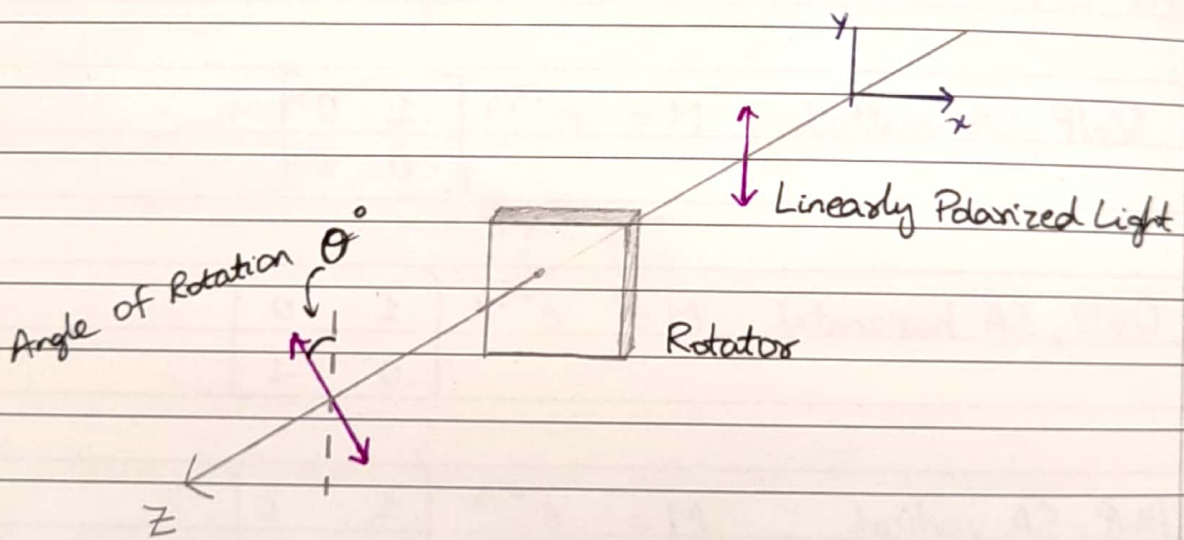 y
x
Linearly Polarized Light
Angle of Rotation θ°
Rotator
Z